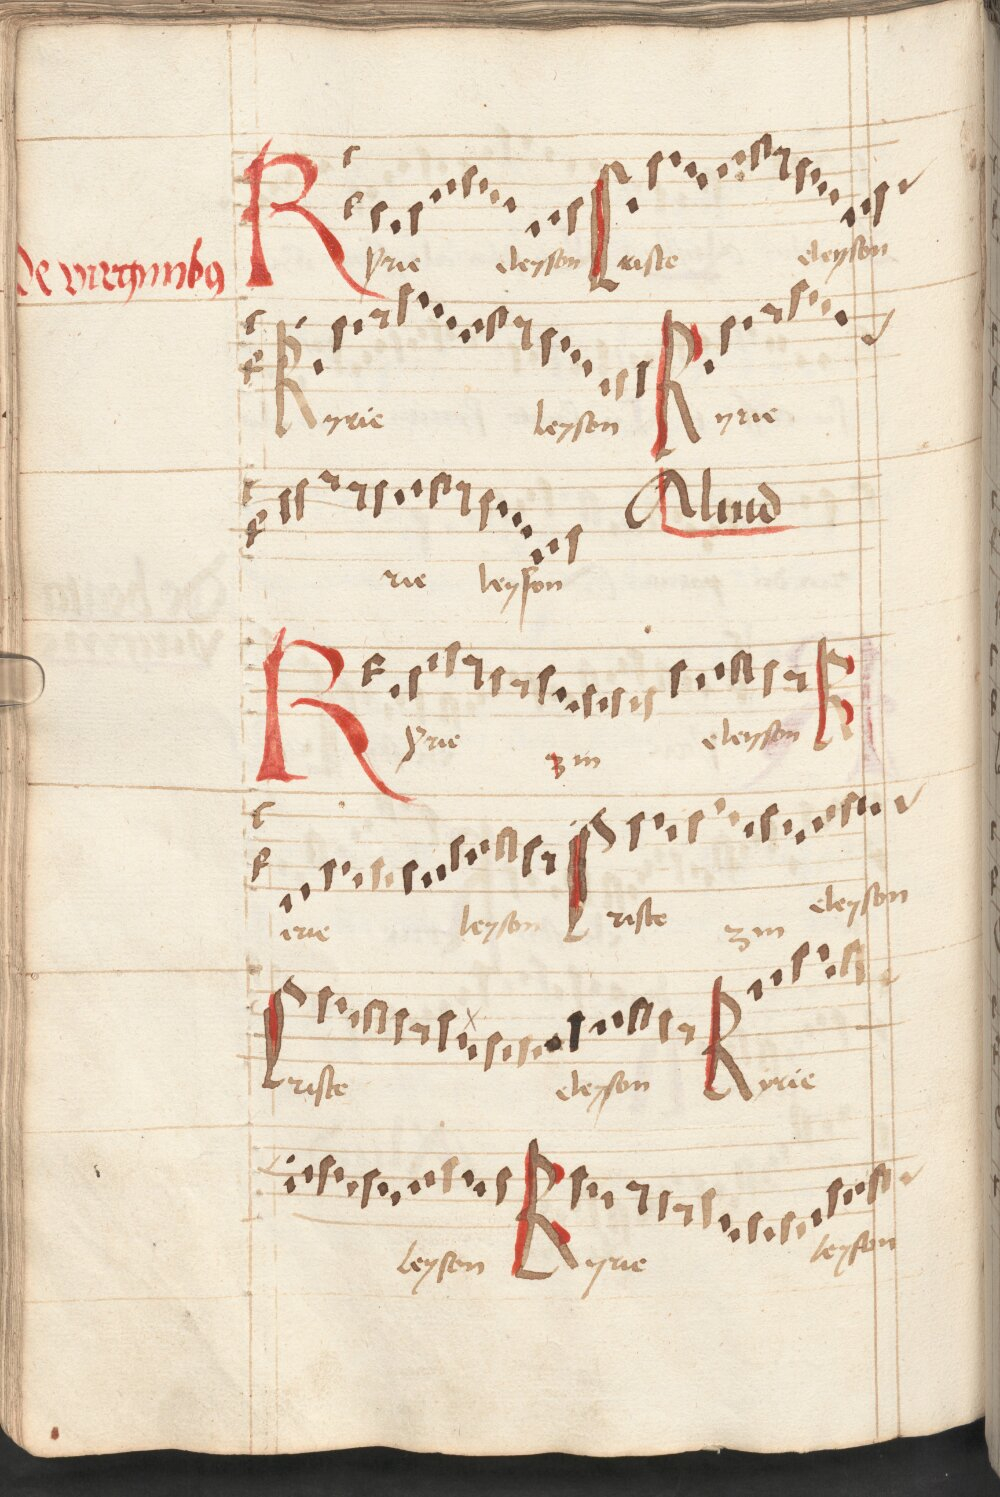 De virginibꝫ
Kyrie eleyson Criste eleyson
Kyrie leyson Kyrie
rie leyson Aliud
Kyrie eleyson K
irie leyson Criste eleyson
Criste eleyson Kyrie
leyson Kyrie leyson